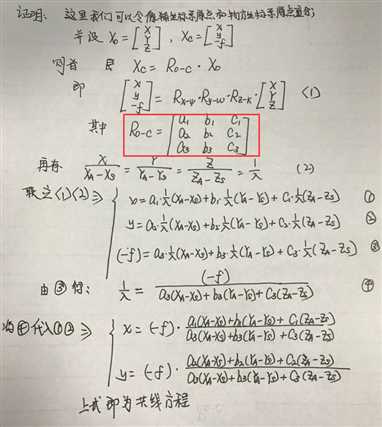 证明: 这里我们可以令像辅坐标系原点和物方坐标系原点重合
并设 X₀ = [X Y Z], Xc = [x y -f]
则有 即 Xc = R₀₋c · X₀
即 [x y -f] = Rx-ψ · Ry-ω · Rz-κ · [X Y Z] <1>
其中 R₀₋c = [a₁ b₁ c₁ a₂ b₂ c₂ a₃ b₃ c₃]
再有 X/(XA-XS) = Y/(YA-YS) = Z/(ZA-ZS) = 1/λ (2)
联立<1>(2) ⇒ { x = a₁·1/λ(XA-XS) + b₁·1/λ(YA-YS) + C₁·1/λ(ZA-ZS) ①
y = a₂·1/λ(XA-XS) + b₂·1/λ(YA-YS) + C₂·1/λ(ZA-ZS) ②
(-f) = a₃·1/λ(XA-XS) + b₃·1/λ(YA-YS) + C₃·1/λ(ZA-ZS) ③
由③得: 1/λ = (-f)/(a₃(XA-XS) + b₃(YA-YS) + C₃(ZA-ZS)) ④
将④代入①② ⇒ { x = (-f)· (a₁(XA-XS) + b₁(YA-YS) + C₁(ZA-ZS))/(a₃(XA-XS) + b₃(YA-YS) + C₃(ZA-ZS))
y = (-f)· (a₂(XA-XS) + b₂(YA-YS) + C₂(ZA-ZS))/(a₃(XA-XS) + b₃(YA-YS) + C₃(ZA-ZS))
上式即为共线方程